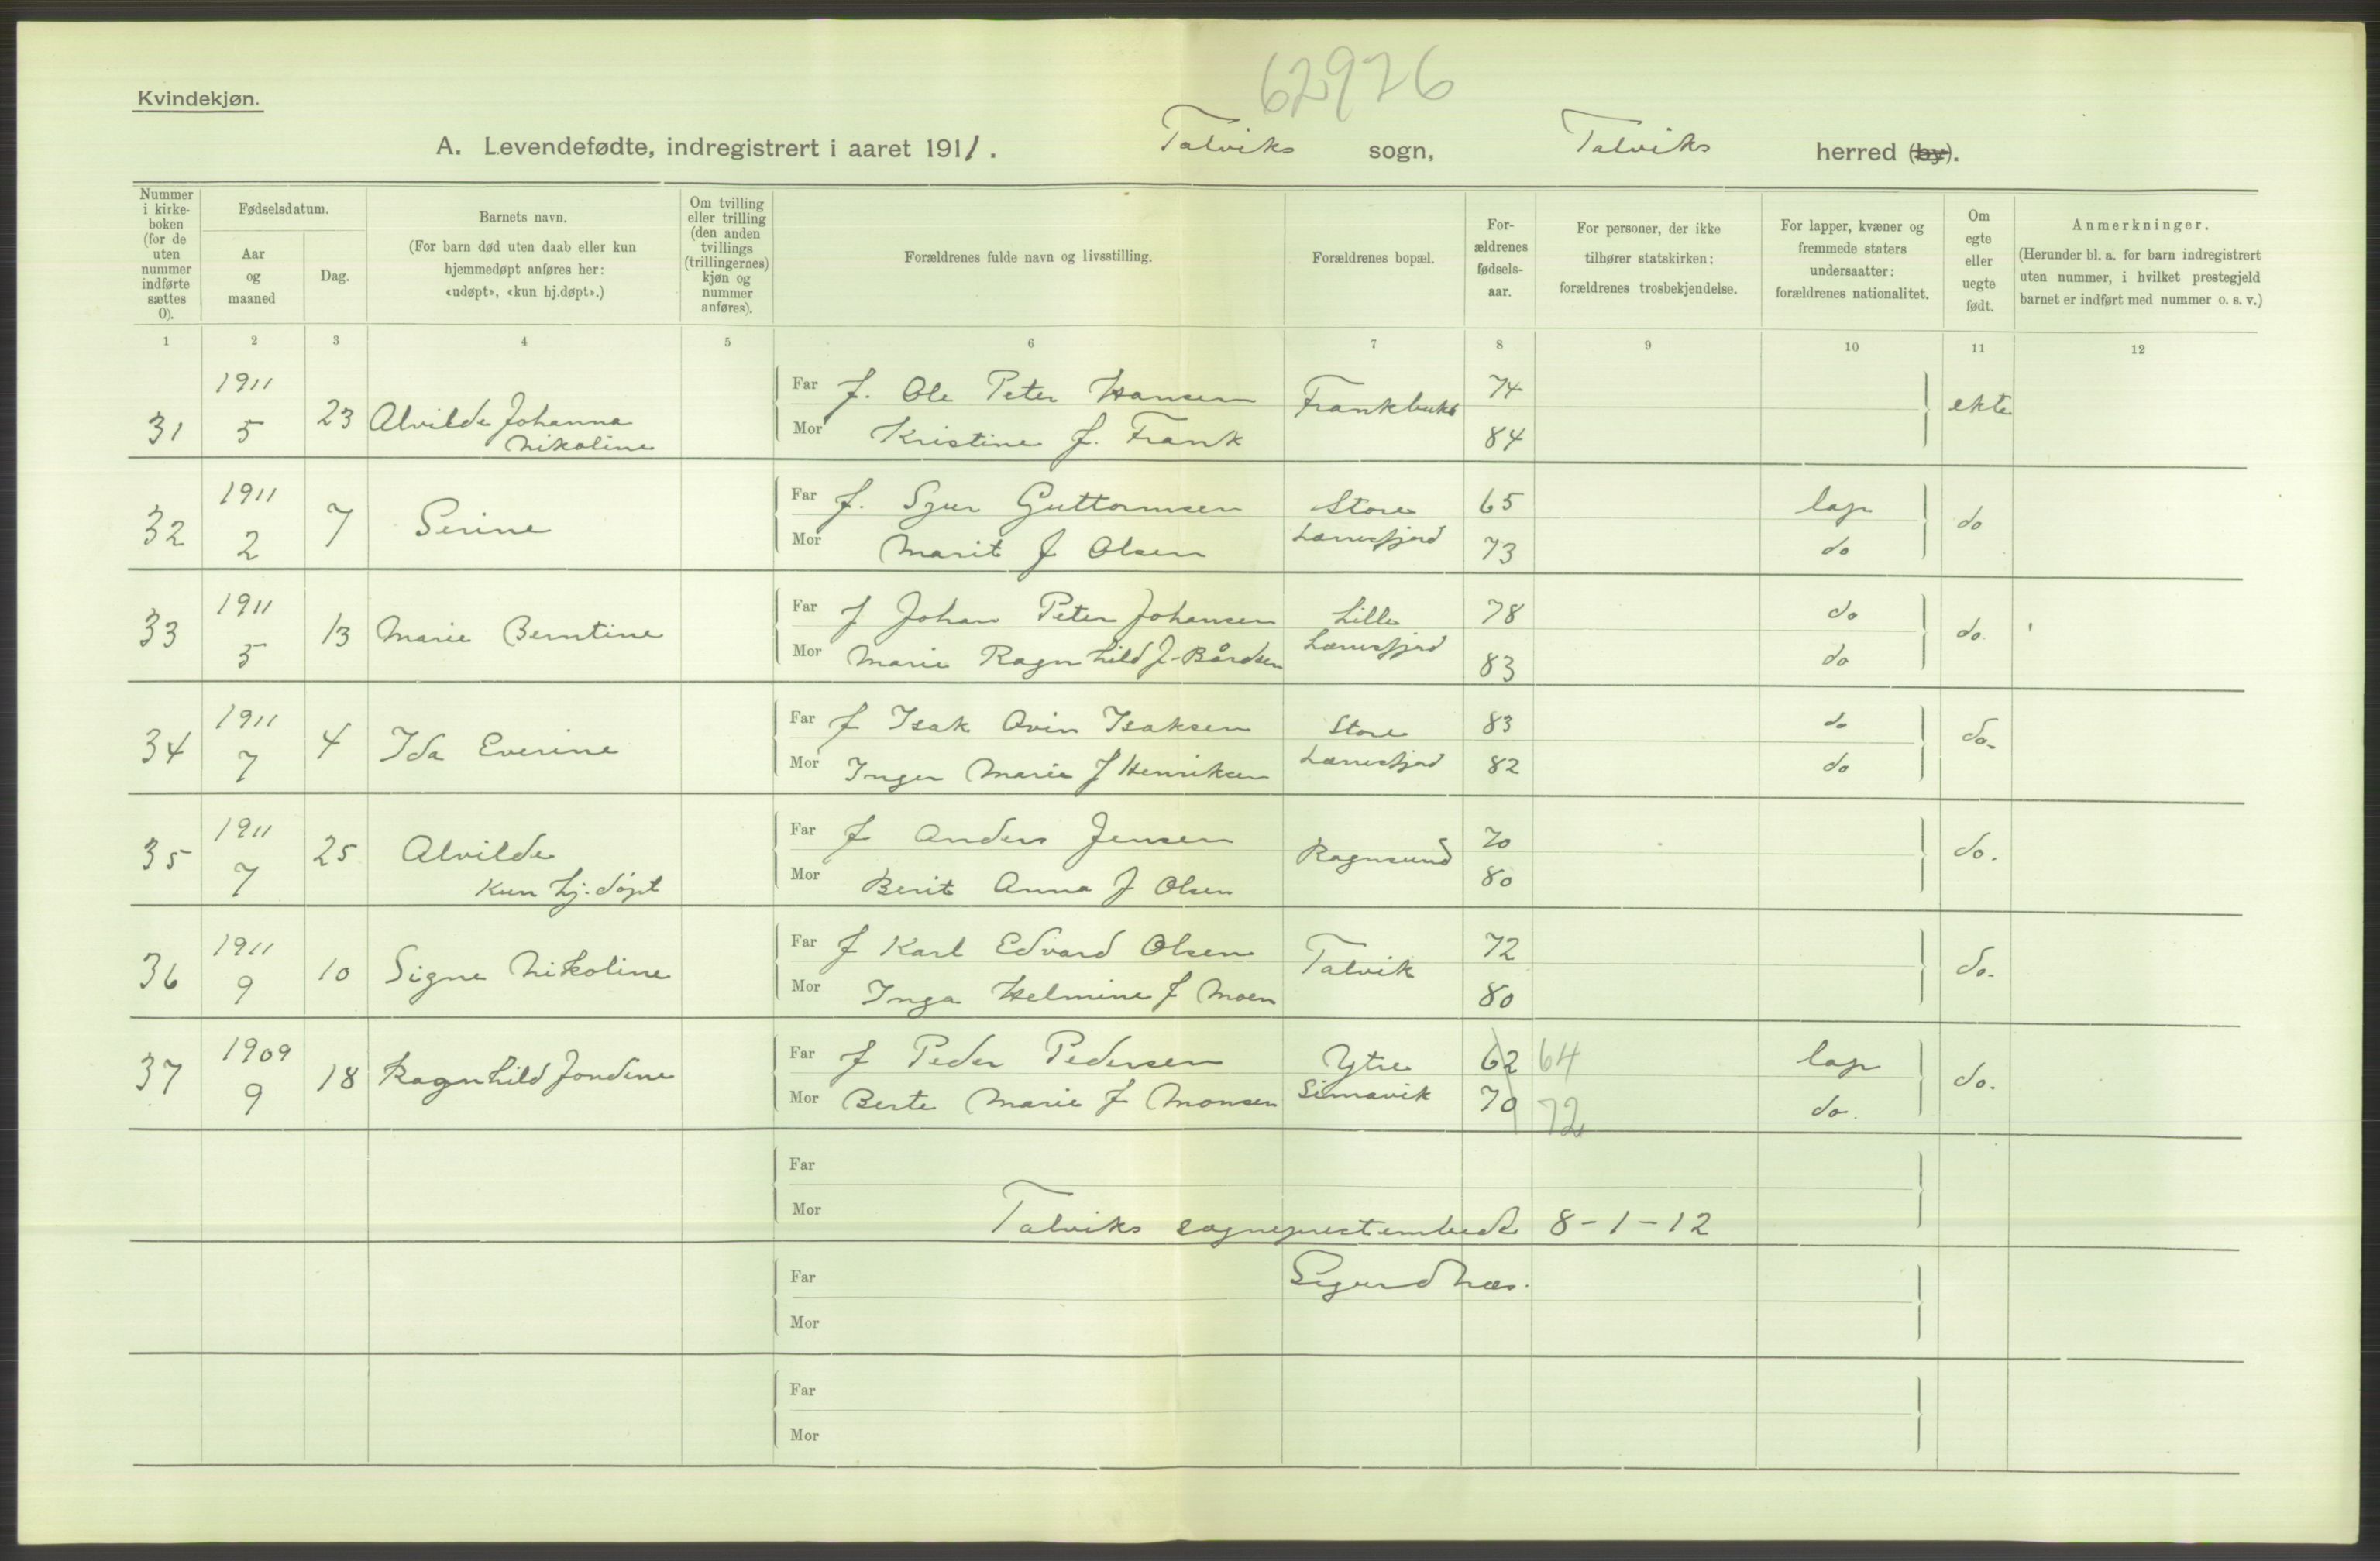 62926
Kvindekjøn.
A. Levendefødte, indregistrert i aaret 1911. Talviks sogn, Talviks herred (by).
Nummer i kirke-boken (for de uten nummer indførte sættes 0).
Fødselsdatum.
Aar og maaned
Dag.
Barnets navn.
(For barn død uten daab eller kun hjemmedøpt anføres her: «udøpt», «kun hj.døpt».)
Om tvilling eller trilling (den anden tvillings (trillingernes) kjøn og nummer anføres).
Forældrenes fulde navn og livsstilling.
Forældrenes bopæl.
For-ældrenes fødsels-aar.
For personer, der ikke tilhører statskirken: forældrenes trosbekjendelse.
For lapper, kvæner og fremmede staters undersaatter: forældrenes nationalitet.
Om egte eller uegte født.
Anmerkninger.
(Herunder bl. a. for barn indregistrert uten nummer, i hvilket prestegjeld barnet er indført med nummer o. s. v.)
1 2 3 4 5 6 7 8 9 10 11 12
31 1911 5 23 Alvilde Johanna Nikoline
Far f. Ole Peter Hansen Frankbukt 74 ekte
Mor Kristine f. Frank 84
32 1911 2 7 Serine
Far f. Sjur Guttormsen Store 65 lap do
Mor Marit f Olsen Lærresfjord 73 do
33 1911 5 13 Marie Berntine
Far f Johan Peter Johansen Lille 78 do do.
Mor Marie Ragnhild f. Bårdsen Lærresfjord 83 do
34 1911 7 4 Ida Everine
Far f Isak Ovin Isaksen Store 83 do do.
Mor Inger Marie f Henriksen Lærresfjord 82 do
35 1911 7 25 Alvilde
Kun hj. døpt
Far f Anders Jensen Rognsund 70 do.
Mor Berit Anna f Olsen 80
36 1911 9 10 Signe Nikoline
Far f Karl Edvard Olsen Talvik 72 do.
Mor Inga Helmine f Moen 80
37 1909 9 18 Ragnhild Jondine
Far f Peder Pedersen Ytre 62 64 lap do.
Mor Berte Marie f Monsen Simavik 70 72 do.
Far
Mor Talviks sogneprestembede 8-1-12
Far Sigurd Næs.
Mor
Far
Mor